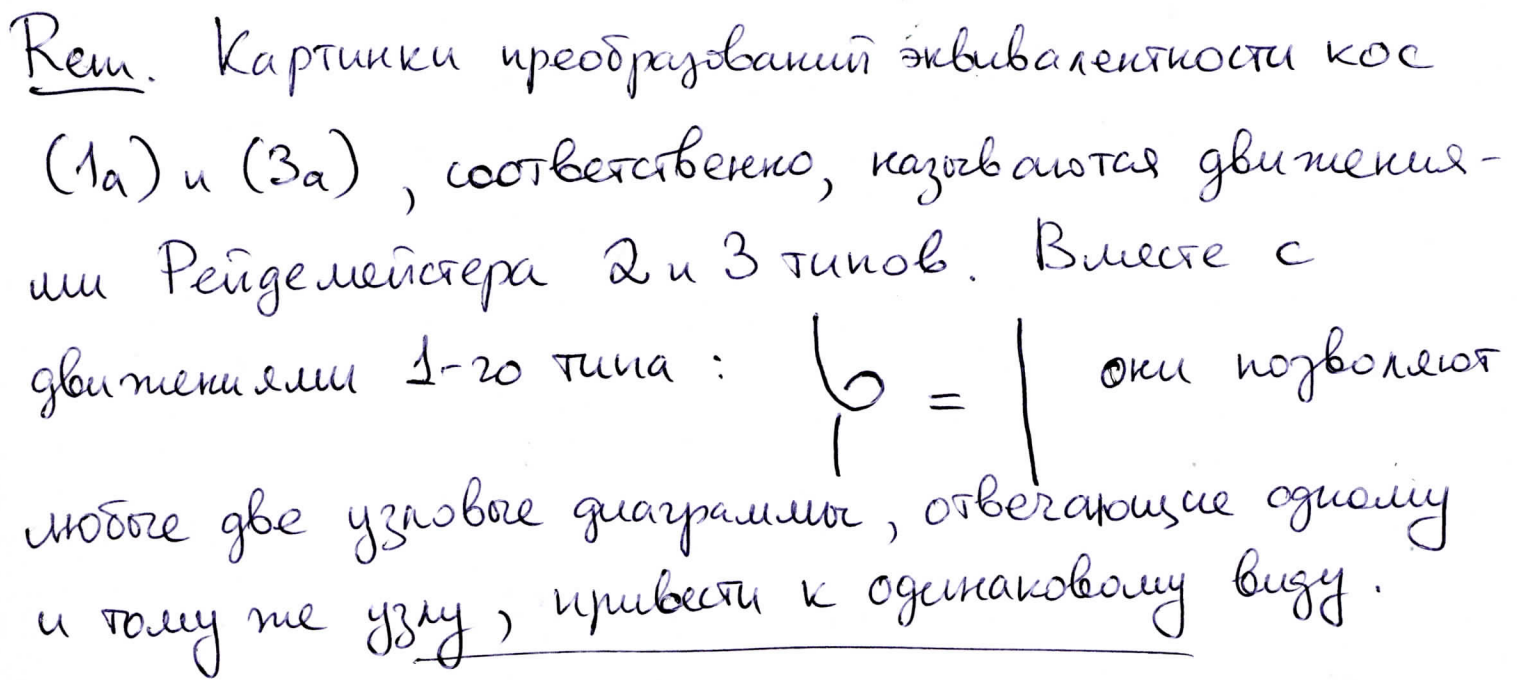 Rem. Картинки преобразований эквивалентности кос
(1а) и (3а), соответственно, называются движения-
ми Рейдемейстера 2 и 3 типов. Вместе с
движениями 1-го типа: = они позволяют
любые две узловые диаграммы, отвечающие одному
и тому же узлу, привести к одинаковому виду.